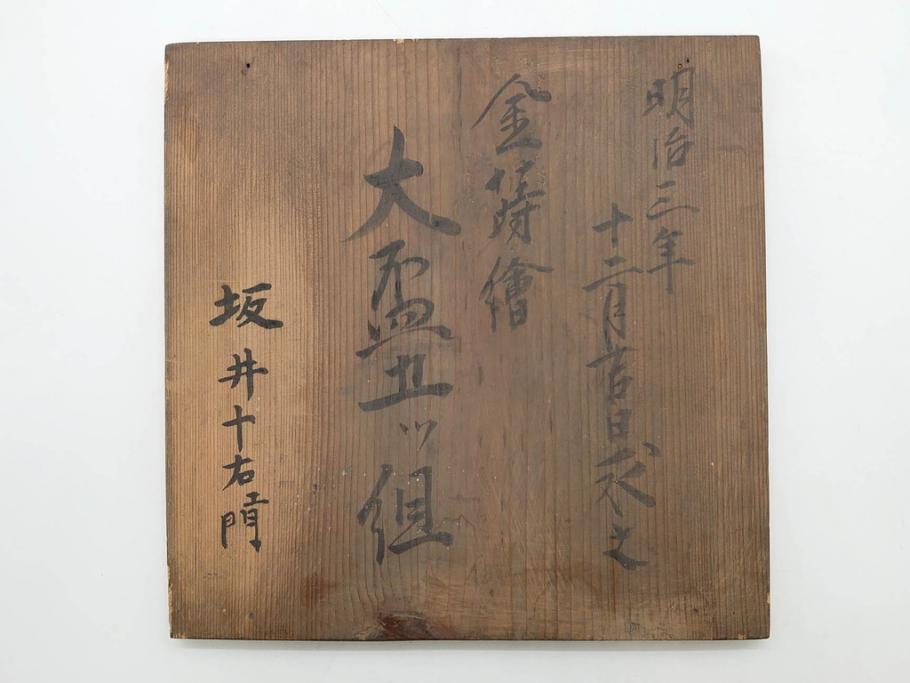 明治三年
十二月吉日求之
金蒔繪
大盃五ッ組
坂井十右衛門